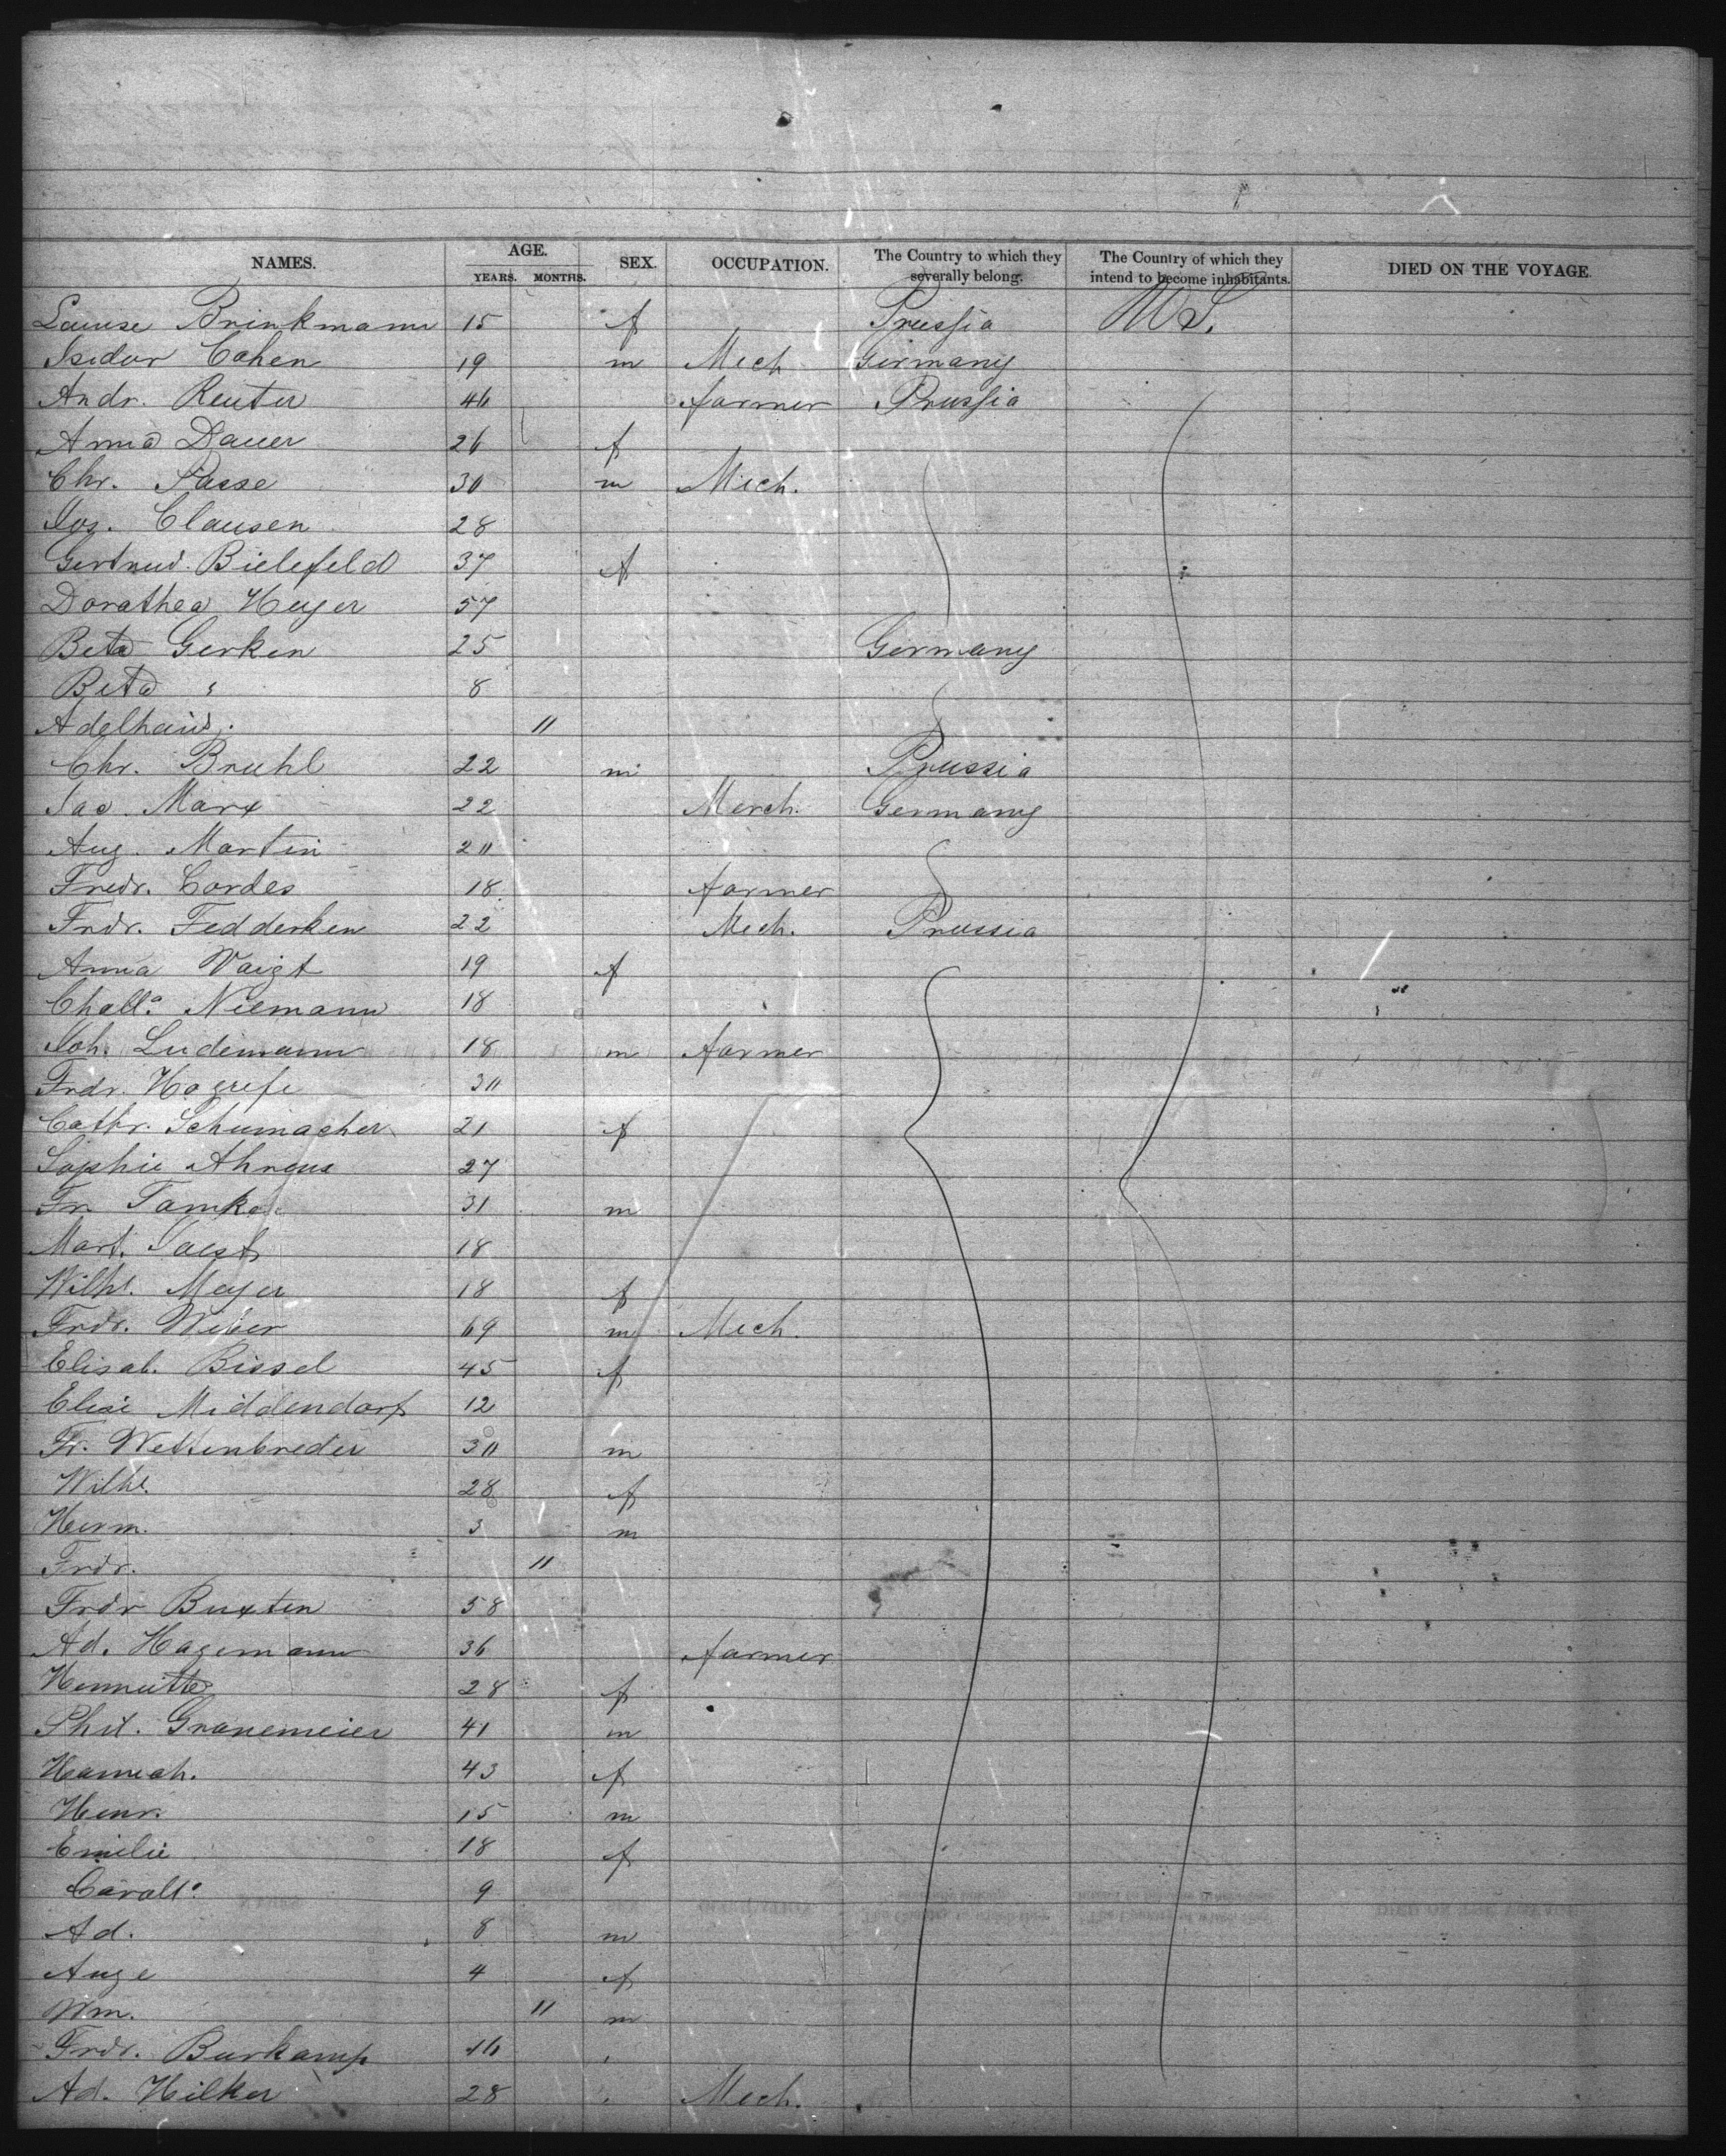 NAMES. AGE. YEARS. MONTHS. SEX. OCCUPATION. The Country to which they severally belong. The Country of which they intend to become inhabitants. DIED ON THE VOYAGE.
Louise Brinkmann 15 f Prussia U S.
Isidor Cohen 19 m Mech Germany
Andr. Reuter 46 farmer Prussia
Anna Dauer 26 f
Chr. Passe 30 m Mech.
Jos. Clausen 28
Gertrud. Bielefeld 37 f
Dorathea Heyer 57
Beta Gerken 25 Germany
Beta " 8
Adelhaid. 11
Chr. Bruhl 22 m Prussia
Jac. Marx 22 Merch. Germany
Aug. Martin 20
Fredr. Cordes 18 farmer
Frdr. Fedderken 22 Mech. Prussia
Anna Voigt 19 f
Niemann 18
Joh. Ludemann 18 m farmer
Frdr. Hogrefe 30
Cathr. Schumacher 21 f
Sophie Ahrens 27
Fr. Tamke 31 m
Mart. 18
Wilhl. Meyer 18 f
Frdr. Weber 69 m Mech.
Elisab. Bissel 45 f
Elise Middendorf 12
Fr. Wettenbreder 30 m
Wilhl. 28 f
Herm. 3 m
Frdr. 11
Frdr Buxten 58
Ad. Hagemann 36 farmer
Henriette 28 f
Phil. Granemeier 41 m
Hannah. 43 f
Henr. 15 m
Emilie 18 f
9
Ad. 8 m
Auge 4 f
Wm. 11 m
Frdr. Burkamp 46
Ad. Hilker 28 Mech.